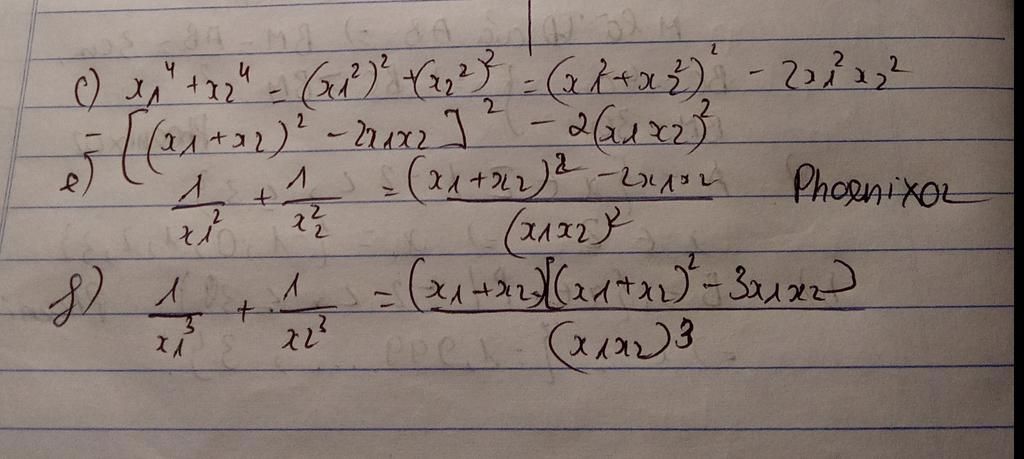 c) x1⁴ + x2⁴ = (x1²)² + (x2²)² = (x1² + x2²)² - 2x1² x2²
= [(x1 + x2)² - 2x1x2]² - 2(x1x2)²
e) 1/x1² + 1/x2² = ((x1 + x2)² - 2x1x2)/(x1x2)² Phoenix02
f) 1/x1³ + 1/x2³ = (x1 + x2)[(x1 + x2)² - 3x1x2)/(x1x2)3